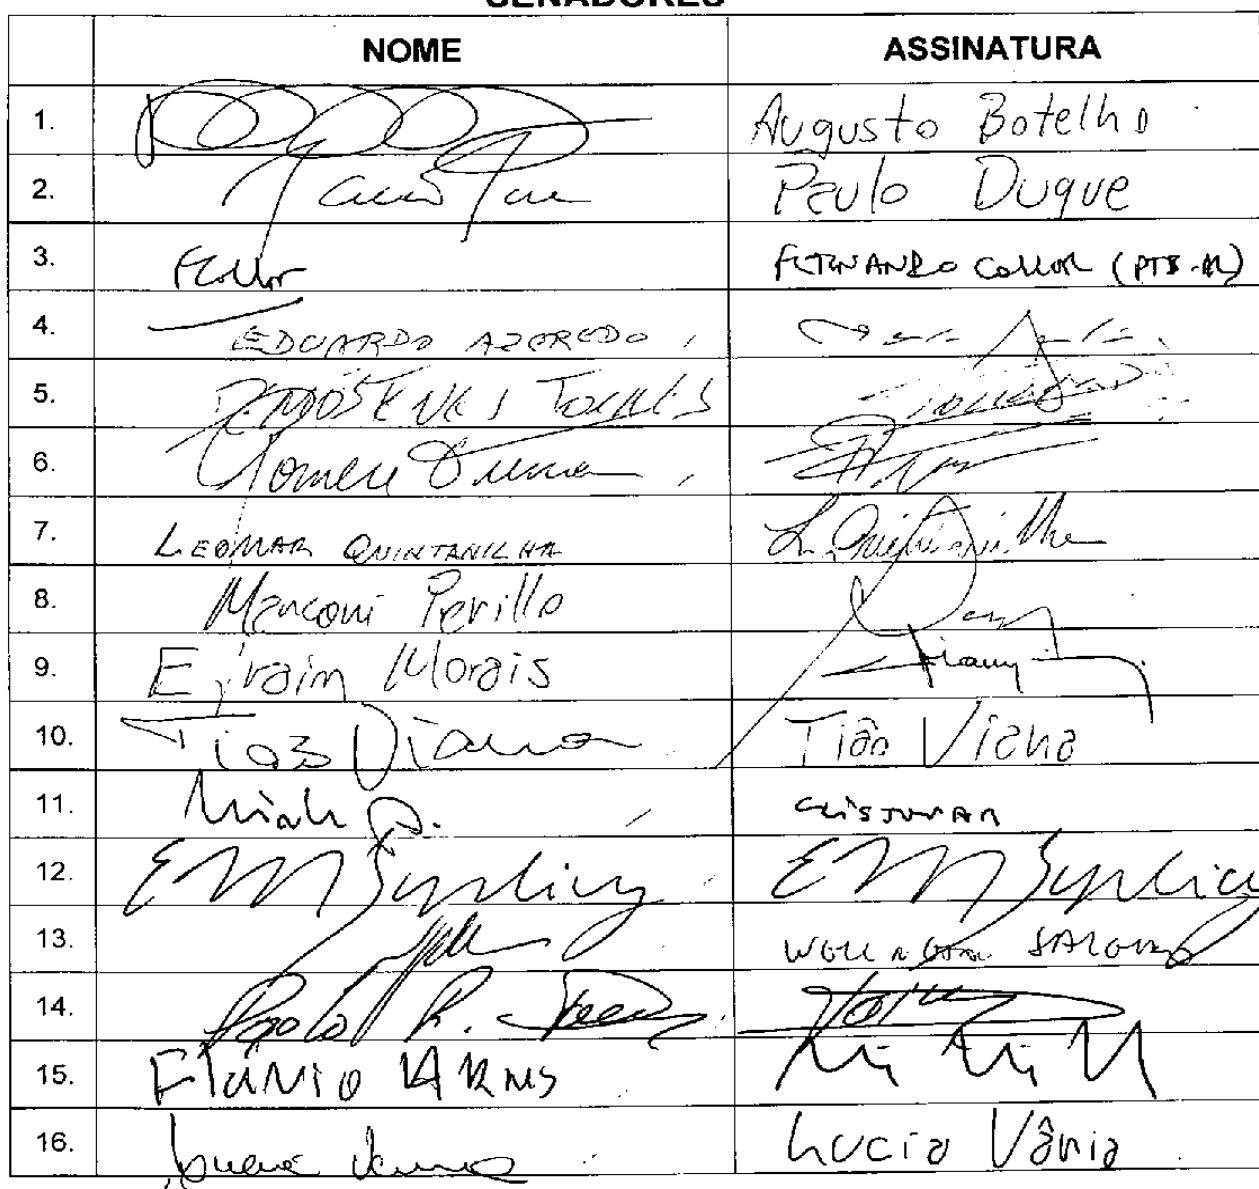 SENADORES
NOME ASSINATURA
1. Augusto Botelho
2. Paulo Duque
3. FCollor FERNANDO COLLOR (PTB-AL)
4. EDUARDO AZEREDO
5. DEMÓSTENES TORRES
6. Romeu Tuma
7. LEOMAR QUINTANILHA L. Quintanilha
8. Marconi Perillo
9. Efraim Morais
10. Tião Viana Tião Viana
11.
12. EM Suplicy EM Suplicy
13. WELLINGTON SALGADO
14. Paulo
15. FLÁVIO ARNS
16. Lucia Vânia Lucia Vânia